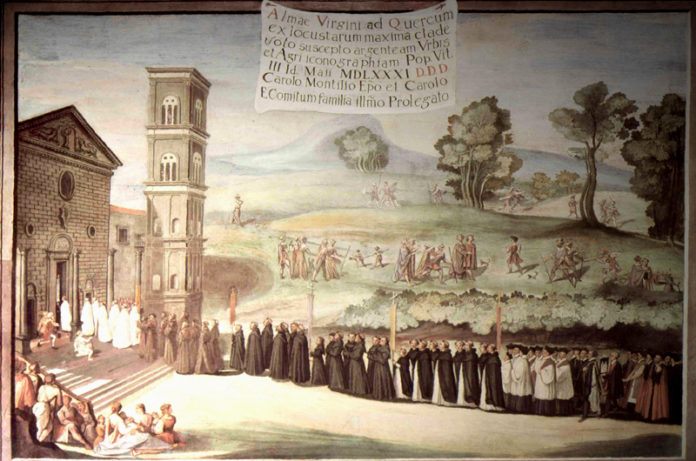 Almae Virgini ad Quercum
ex locustarum maxima clade
voto suscepto argenteam Vrbis
et Agri iconographiam Pop Vit.
III Id. Maii MDLXXXI D.D.D
Carolo Montilio Epo et Carolo
E Comitum familia Illmo Prolegato